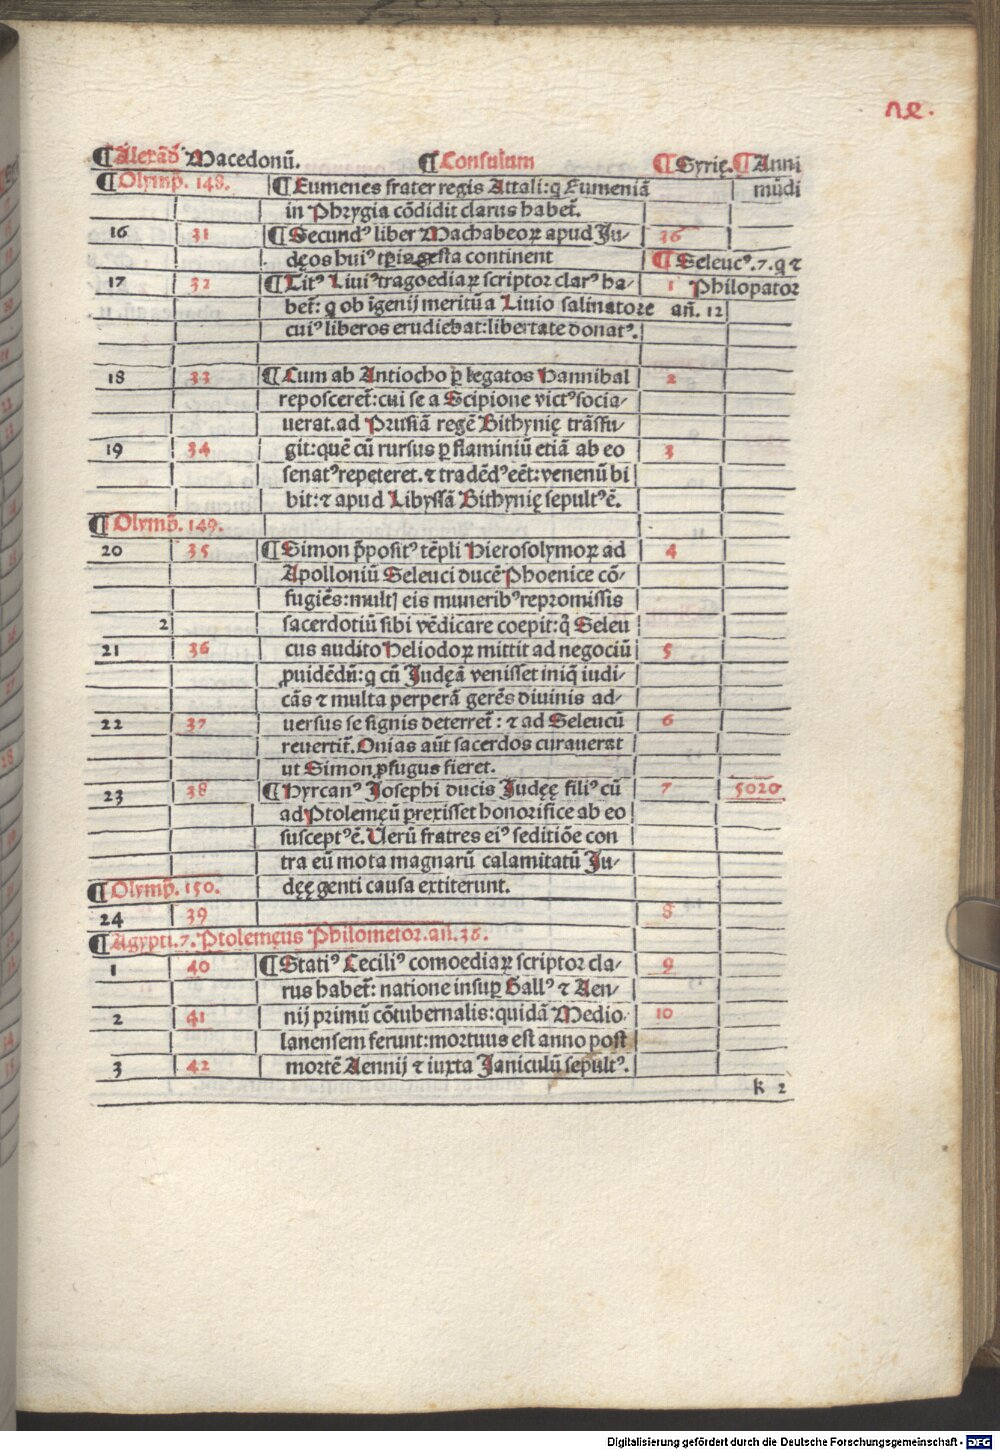 ¶ Alexãd Macedonũ. ¶ Consulum ¶ Syrię. ¶ Anni
¶ Olymp̃. 148. ¶ Eumenes frater regis Attali: q Eumeniã mũdi
in Phrygia cõdidit clarus habet̃.
16 31 ¶ Secundꝰ liber Machabeoꝝ apud Ju- 36
dęos huiꝰ tp̃is gesta continent ¶ Seleucꝰ. 7. q ⁊
17 32 ¶ Titꝰ Liuiꝰ tragoediaꝝ scriptor clarꝰ ha- 1 Philopator
bet̃: q ob ĩgenij meritũ a Liuio salinatore añ. 12
cuiꝰ liberos erudiebat: libertate donatꝰ.
18 33 ¶ Cum ab Antiocho ꝑ legatos Hannibal 2
reposceret̃: cui se a Scipione victꝰ socia-
uerat. ad Prusiã regẽ Bithynię trãsfu-
19 34 git: quẽ cũ rursus ꝑ flaminiũ etiã ab eo 3
senatꝰ repeteret. ⁊ tradẽdꝰ eẽt: venenũ bi
bit: ⁊ apud Libyssã Bithynię sepultꝰ ẽ.
¶ Olymp̃. 149.
20 35 ¶ Simon p̃positꝰ tẽpli Hierosolymoꝝ ad 4
Apolloniũ Seleuci ducẽ Phoenice cõ-
fugiẽs: mult] eis muneribꝰ repromissis
2 sacerdotiũ sibi vẽdicare coepit: q̃ Seleu
21 36 cus audito Heliodoꝝ mittit ad negociũ 5
ꝓuidẽdũ: q cũ Judęã venisset iniq̃ iudi-
cãs ⁊ multa perperã gerẽs diuinis ad-
22 37 uersus se signis deterret̃: ⁊ ad Seleucũ 6
reuertit̃. Onias aũt sacerdos curauerat
ut Simon ꝓfugus fieret.
23 38 ¶ Hyrcanꝰ Josephi ducis Judęę filiꝰ cũ 7 5020
ad Ptolemęũ ꝑrexisset honorifice ab eo
susceptꝰ ẽ. Uerũ fratres eiꝰ seditiõe con
tra eũ mota magnarũ calamitatũ Ju-
¶ Olymp̃. 150. dęę genti causa extiterunt.
24 39 8
¶ Ägypti. 7. Ptolemęus Philometor. añ. 36.
1 40 ¶ Statiꝰ Ceciliꝰ comoediaꝝ scriptor cla- 9
rus habet̃: natione insuꝑ Gallꝰ ⁊ Aen-
2 41 nij primũ cõtubernalis: quidã Medio- 10
lanensem ferunt: mortuus est anno post
3 42 mortẽ Aennij ⁊ iuxta Janiculũ sepultꝰ.
k 2
Digitalisierung gefördert durch die Deutsche Forschungsgemeinschaft - DFG